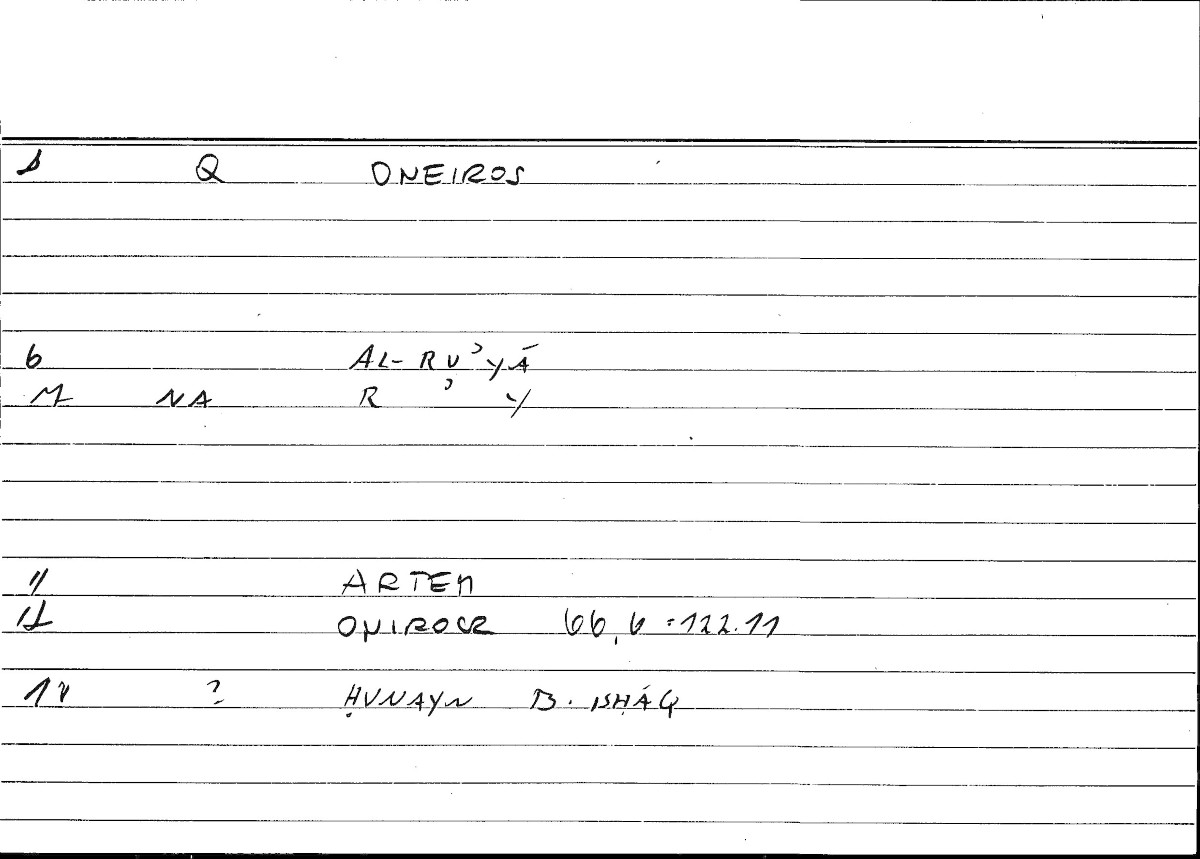 1 Q ONEIROS
6 AL-RUʾYĀ
M NA R ʾ Y
11 ARTEM
12 ONIROCR 66,6 = 122.11
14 ? ḤUNAYN B. ISḤĀQ